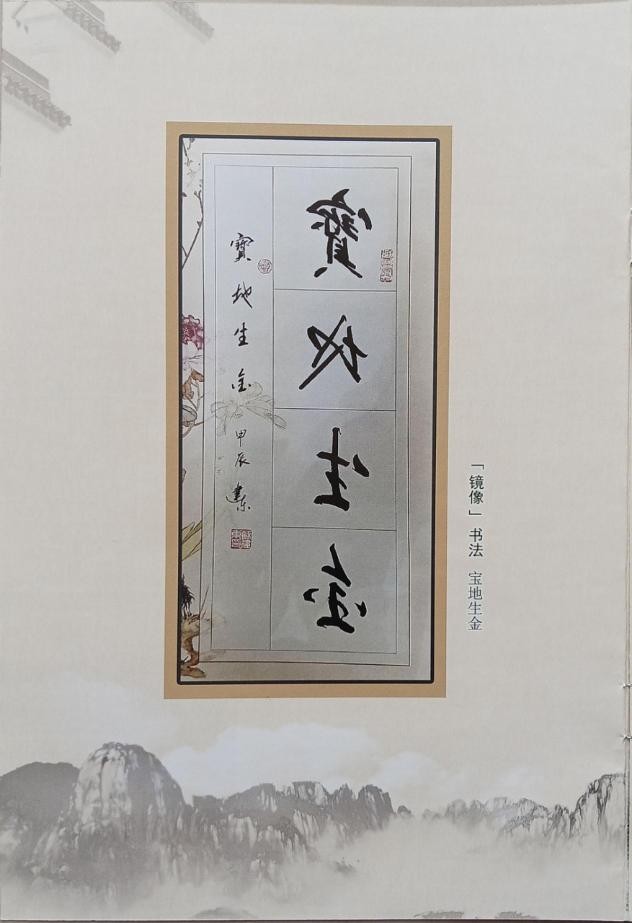 「镜像」书法 宝地生金
寶地生金
寶地生金 甲辰 建东